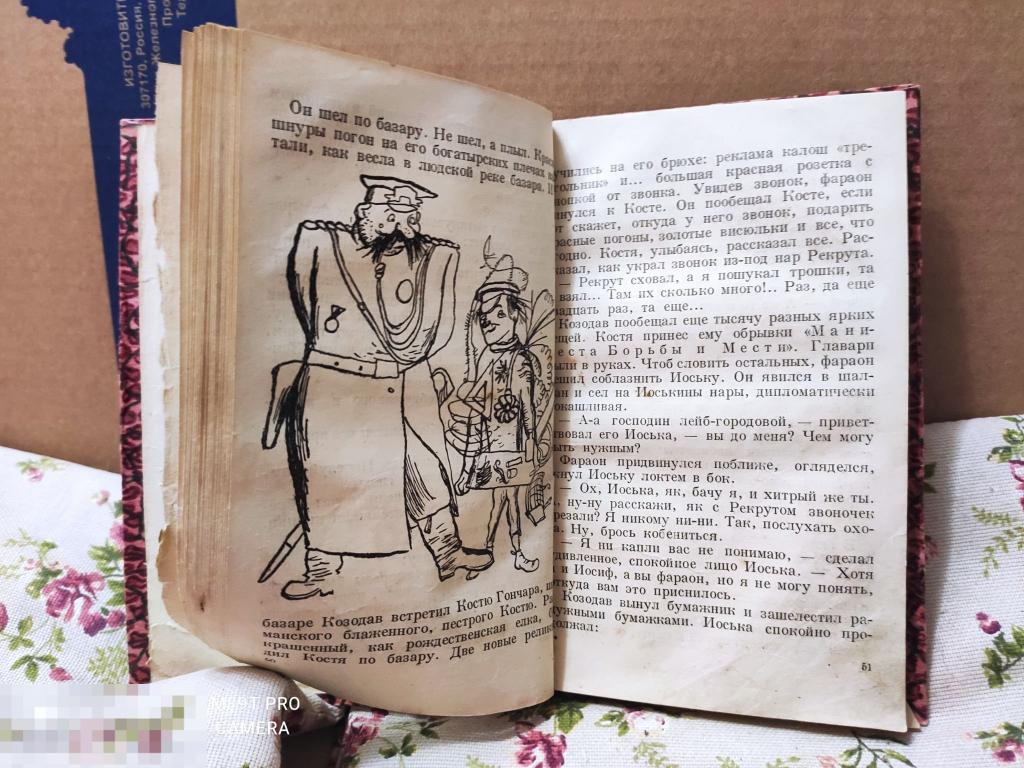 ИЗГОТОВИТ
307170, Россия,
Железног
Про
Те
Он шел по базару. Не шел, а плыл. Крас
шнуры погон на его богатырских плечах
тали, как весла в людской реке базара.
базаре Козодав встретил Костю Гончара,
манского блаженного, пестрого Костю. Ра
крашенный, как рождественская елка,
дил Костя по базару. Две новые релик
чились на его брюхе: реклама калош «тре-
ольник» и... большая красная розетка с
нопкой от звонка. Увидев звонок, фараон
нулся к Косте. Он пообещал Косте, если
т скажет, откуда у него звонок, подарить
расные погоны, золотые висюльки и все, что
годно. Костя, улыбаясь, рассказал все. Рас-
казал, как украл звонок из-под нар Рекрута.
— Рекрут сховал, а я пошукал трошки, та
взял... Там их сколько много!.. Раз, да еще
адцать раз, та еще...
Козодав пообещал еще тысячу разных ярких
ещей. Костя принес ему обрывки «Мани-
еста Борьбы и Мести». Главари
ыли в руках. Чтоб словить остальных, фараон
ешил соблазнить Иоську. Он явился в шал-
ан и сел на Иоськины нары, дипломатически
окашливая.
— А-а господин лейб-городовой, — привет-
твовал его Иоська, — вы до меня? Чем могу
ыть нужным?
Фараон придвинулся поближе, огляделся,
кнул Иоську локтем в бок.
— Ох, Иоська, як, бачу я, и хитрый же ты.
, ну-ну расскажи, як с Рекрутом звоночек
резали? Я никому ни-ни. Так, послухать охо-
а. Ну, брось кобениться.
— Я ни капли вас не понимаю, — сделал
дивленное, спокойное лицо Иоська. — Хотя
и Иосиф, а вы фараон, но я не могу понять,
ткуда вам это приснилось.
Козодав вынул бумажник и зашелестил ра-
ужными бумажками. Иоська спокойно про-
олжал:
51
PRO
CAMERA